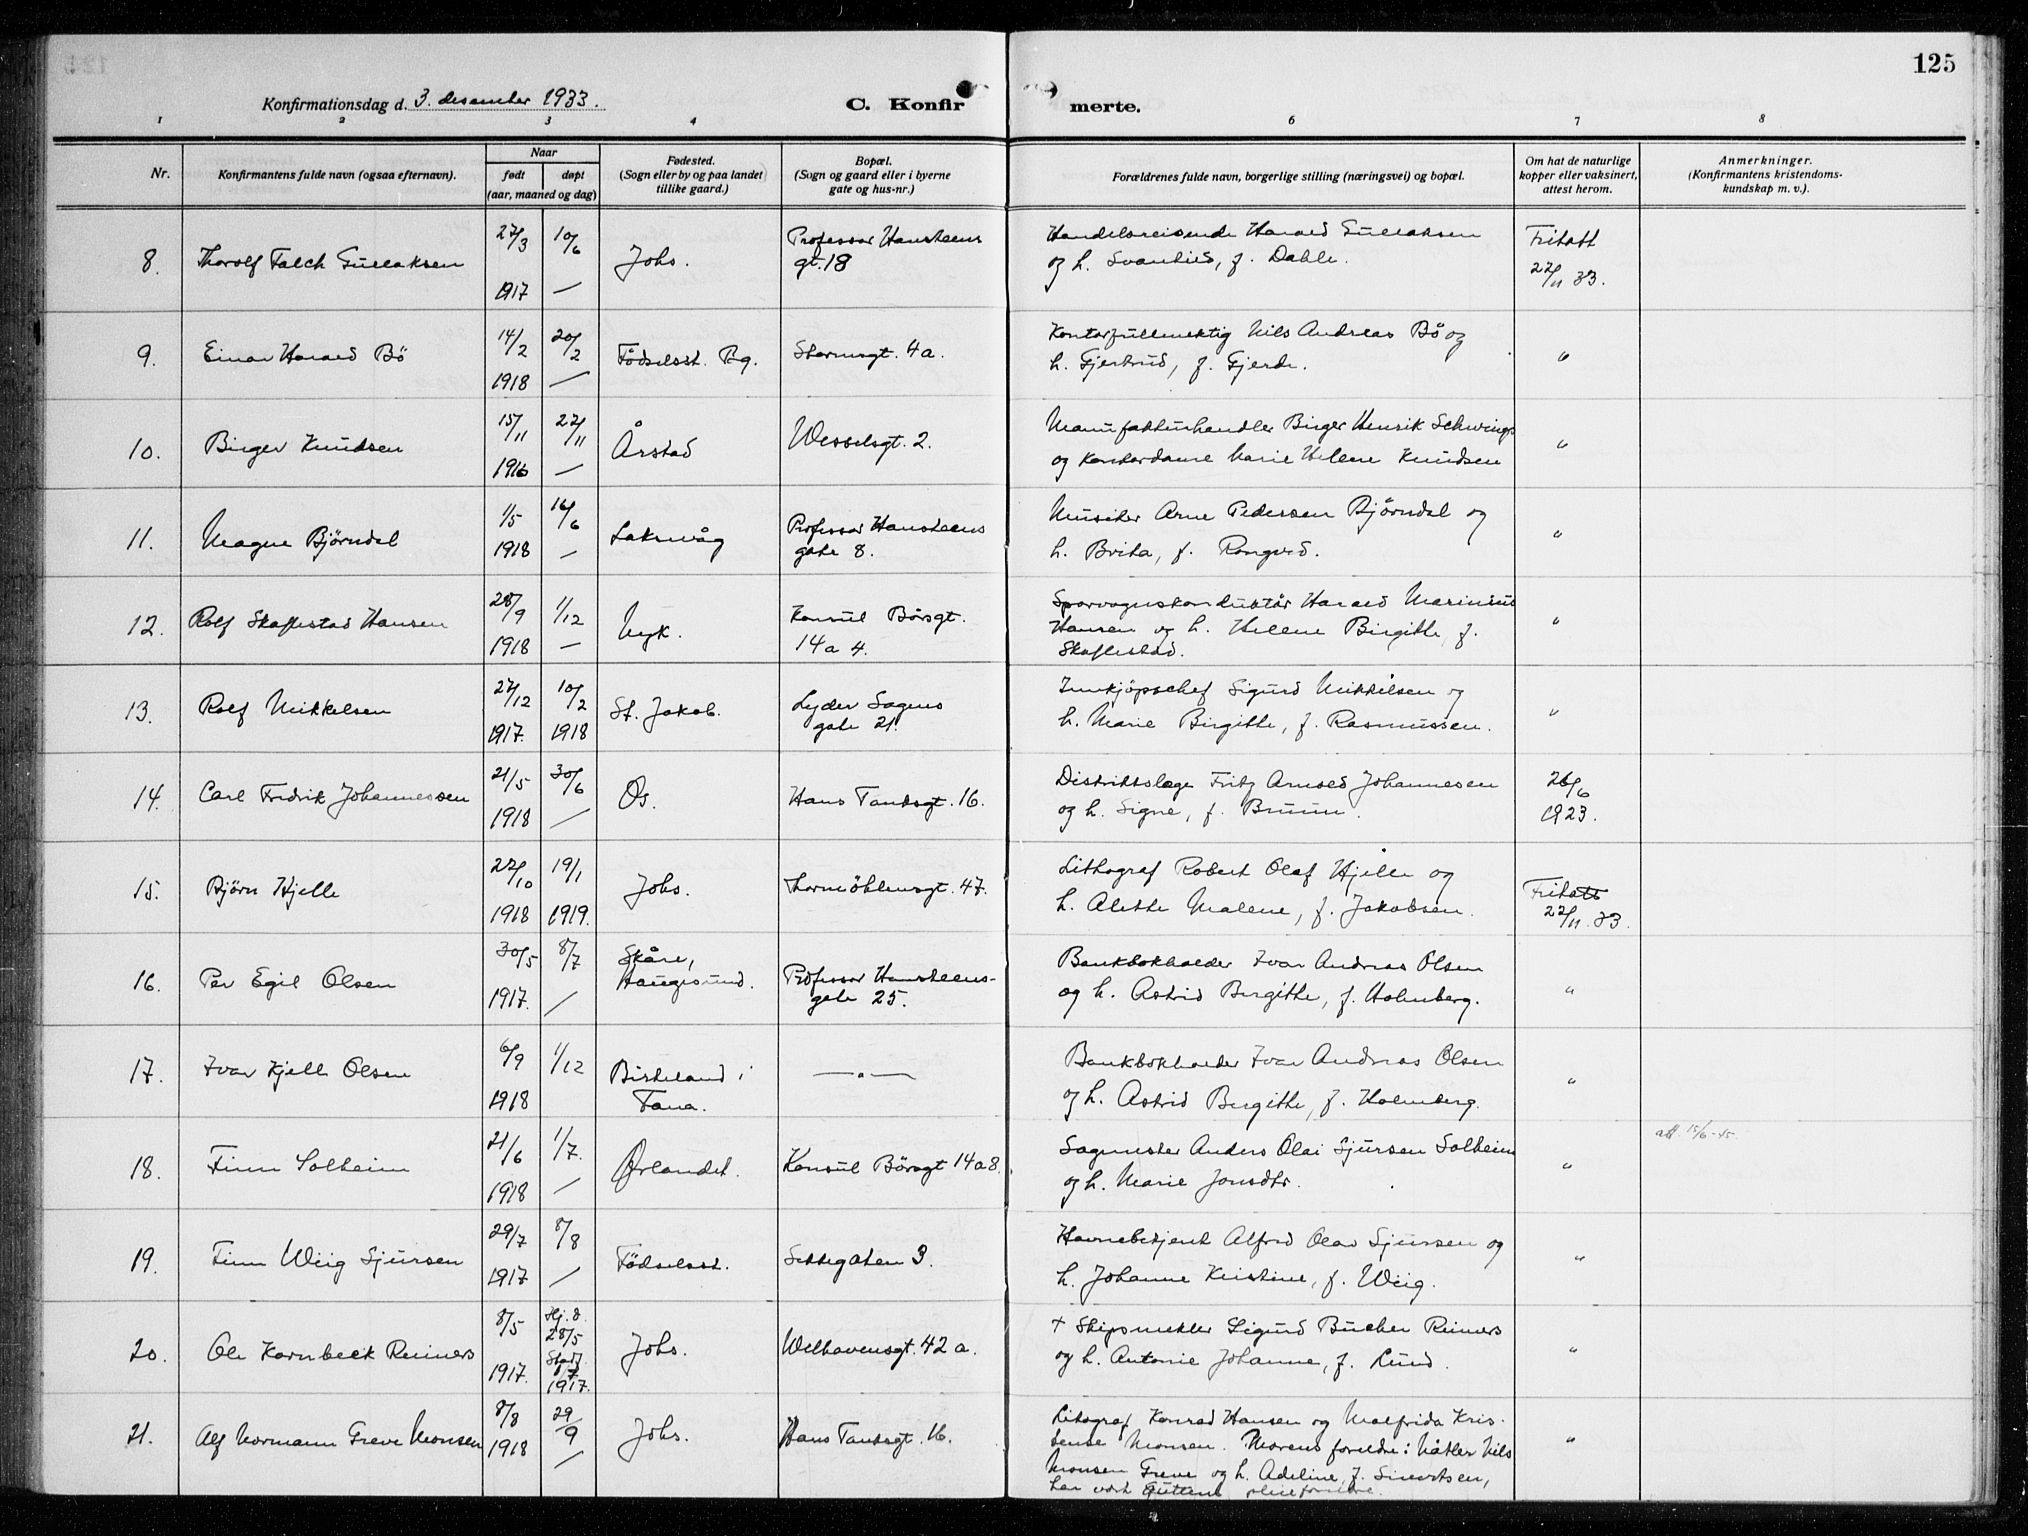 125
Konfirmationsdag d. 3. desember 1933.
C. Konfir
merte.
1 2 3 4 6 7 8
Nr.
Konfirmantens fulde navn (ogsaa efternavn).
Naar
født
døpt
(aar, maaned og dag)
Fødested.
(Sogn eller by og paa landet
tillike gaard.)
Bopæl.
(Sogn og gaard eller i byerne
gate og hus-nr.)
Forældrenes fulde navn, borgerlige stilling (næringsvei) og bopæl.
Om hat de naturlige
kopper eller vaksinert,
attest herom.
Anmerkninger.
(Konfirmantens kristendoms-
kundskap m. v.).
8. Thorolf Falch Gullaksen
27/3 1917
10/6 —
Johs.
Professor Hansteens
gt. 18
Handelsreisende Harald Gullaksen
og h. Svanhild, f. Dahle.
Fritatt
22/11 33.
9. Einar Harald Bö
14/2 1918
20/2 —
Födselsst. Bg.
Stormsgt. 4a.
Kontorfullmektig Nils Andreas Bö og
h. Gjertrud, f. Gjerde.
"
10. Birger Knudsen
15/11 1916
27/11 —
Årstad
Wesselsgt. 2.
Manufakturhandler Birger Henrik Schwings
og Kontordame Marie Helene Knudsen
"
11. Magne Bjørndal
1/5 1918
16/6 —
Laksevåg
Professor Hansteens
gate 8.
Musiker Arne Pedersen Bjørndal og
h. Brita, f. Rongved.
"
12. Rolf Skaftestad Hansen
28/9 1918
1/12 —
Nyk.
Konsul Börsgt.
14a 4.
Sporvognskonduktör Harald Marinius
Hansen og h. Helene Birgitte, f.
Skaftestad.
"
13. Rolf Mikkelsen
27/12 1917.
10/2 1918
St. Jakob.
Lyder Sagens
gate 21.
Innkjöpschef Sigurd Mikkelsen og
h. Marie Birgitte, f. Rasmussen.
"
14. Carl Fredrik Johannessen
21/5 1918
30/6 —
Os.
Hans Tanksgt. 16.
Distriktslæge Fritz Arnold Johannesen
og h. Signe, f. Bruun.
26/6
1923.
15. Bjørn Hjelle
27/10 1918
19/1 1919.
Johs.
Thormöhlensgt. 47.
Lithograf Robert Olaf Hjelle og
h. Alette Malene, f. Jakobsen.
Fritatt
22/11 33.
16. Per Egil Olsen
30/5 1917.
8/7 —
Skåre,
Haugesund.
Professor Hansteens-
gate 25.
Bankbokholder Ivar Andreas Olsen
og h. Astrid Birgitte, f. Holmberg.
"
17. Ivar Kjell Olsen
6/9 1918
1/12
Birkeland i
Fana.
—"—
Bankbokholder Ivar Andreas Olsen
og h. Astrid Birgitte, f. Holmberg.
"
18. Finn Solheim
21/6 1918
1/7. —
Ørlandet.
Konsul Börsgt 14a 8.
Sagmester Anders Olai Sjursen Solheim
og h. Marie Jonsdtr.
"
att. 15/6-45.
19. Finn Wiig Sjursen
29/7 1917
8/8 —
Födselsst.
Settegaten 3.
Havnebetjent Alfred Olav Sjursen og
h. Johanne Kristine, f. Wiig.
"
20. Ole Kornbeck Reimers
8/5 1917.
Hj. d.
28/5
Stadf.
1/7
1917.
Johs.
Welhavensgt. 42 a.
+ Skipsmekler Sigurd Bucher Reimers
og h. Antonie Johanne, f. Lund.
"
21. Alf Normann Greve Monsen
8/8 1918
29/9 —
Johs.
Hans Tanksgt. 16.
Litograf Konrad Hansen og Malfrida Kris-
tense Monsen. Morens foreldre: Nils
Monsen Greve og h. Adeline, f. Sivertsen,
har vært guttens pleieforeldre.
"